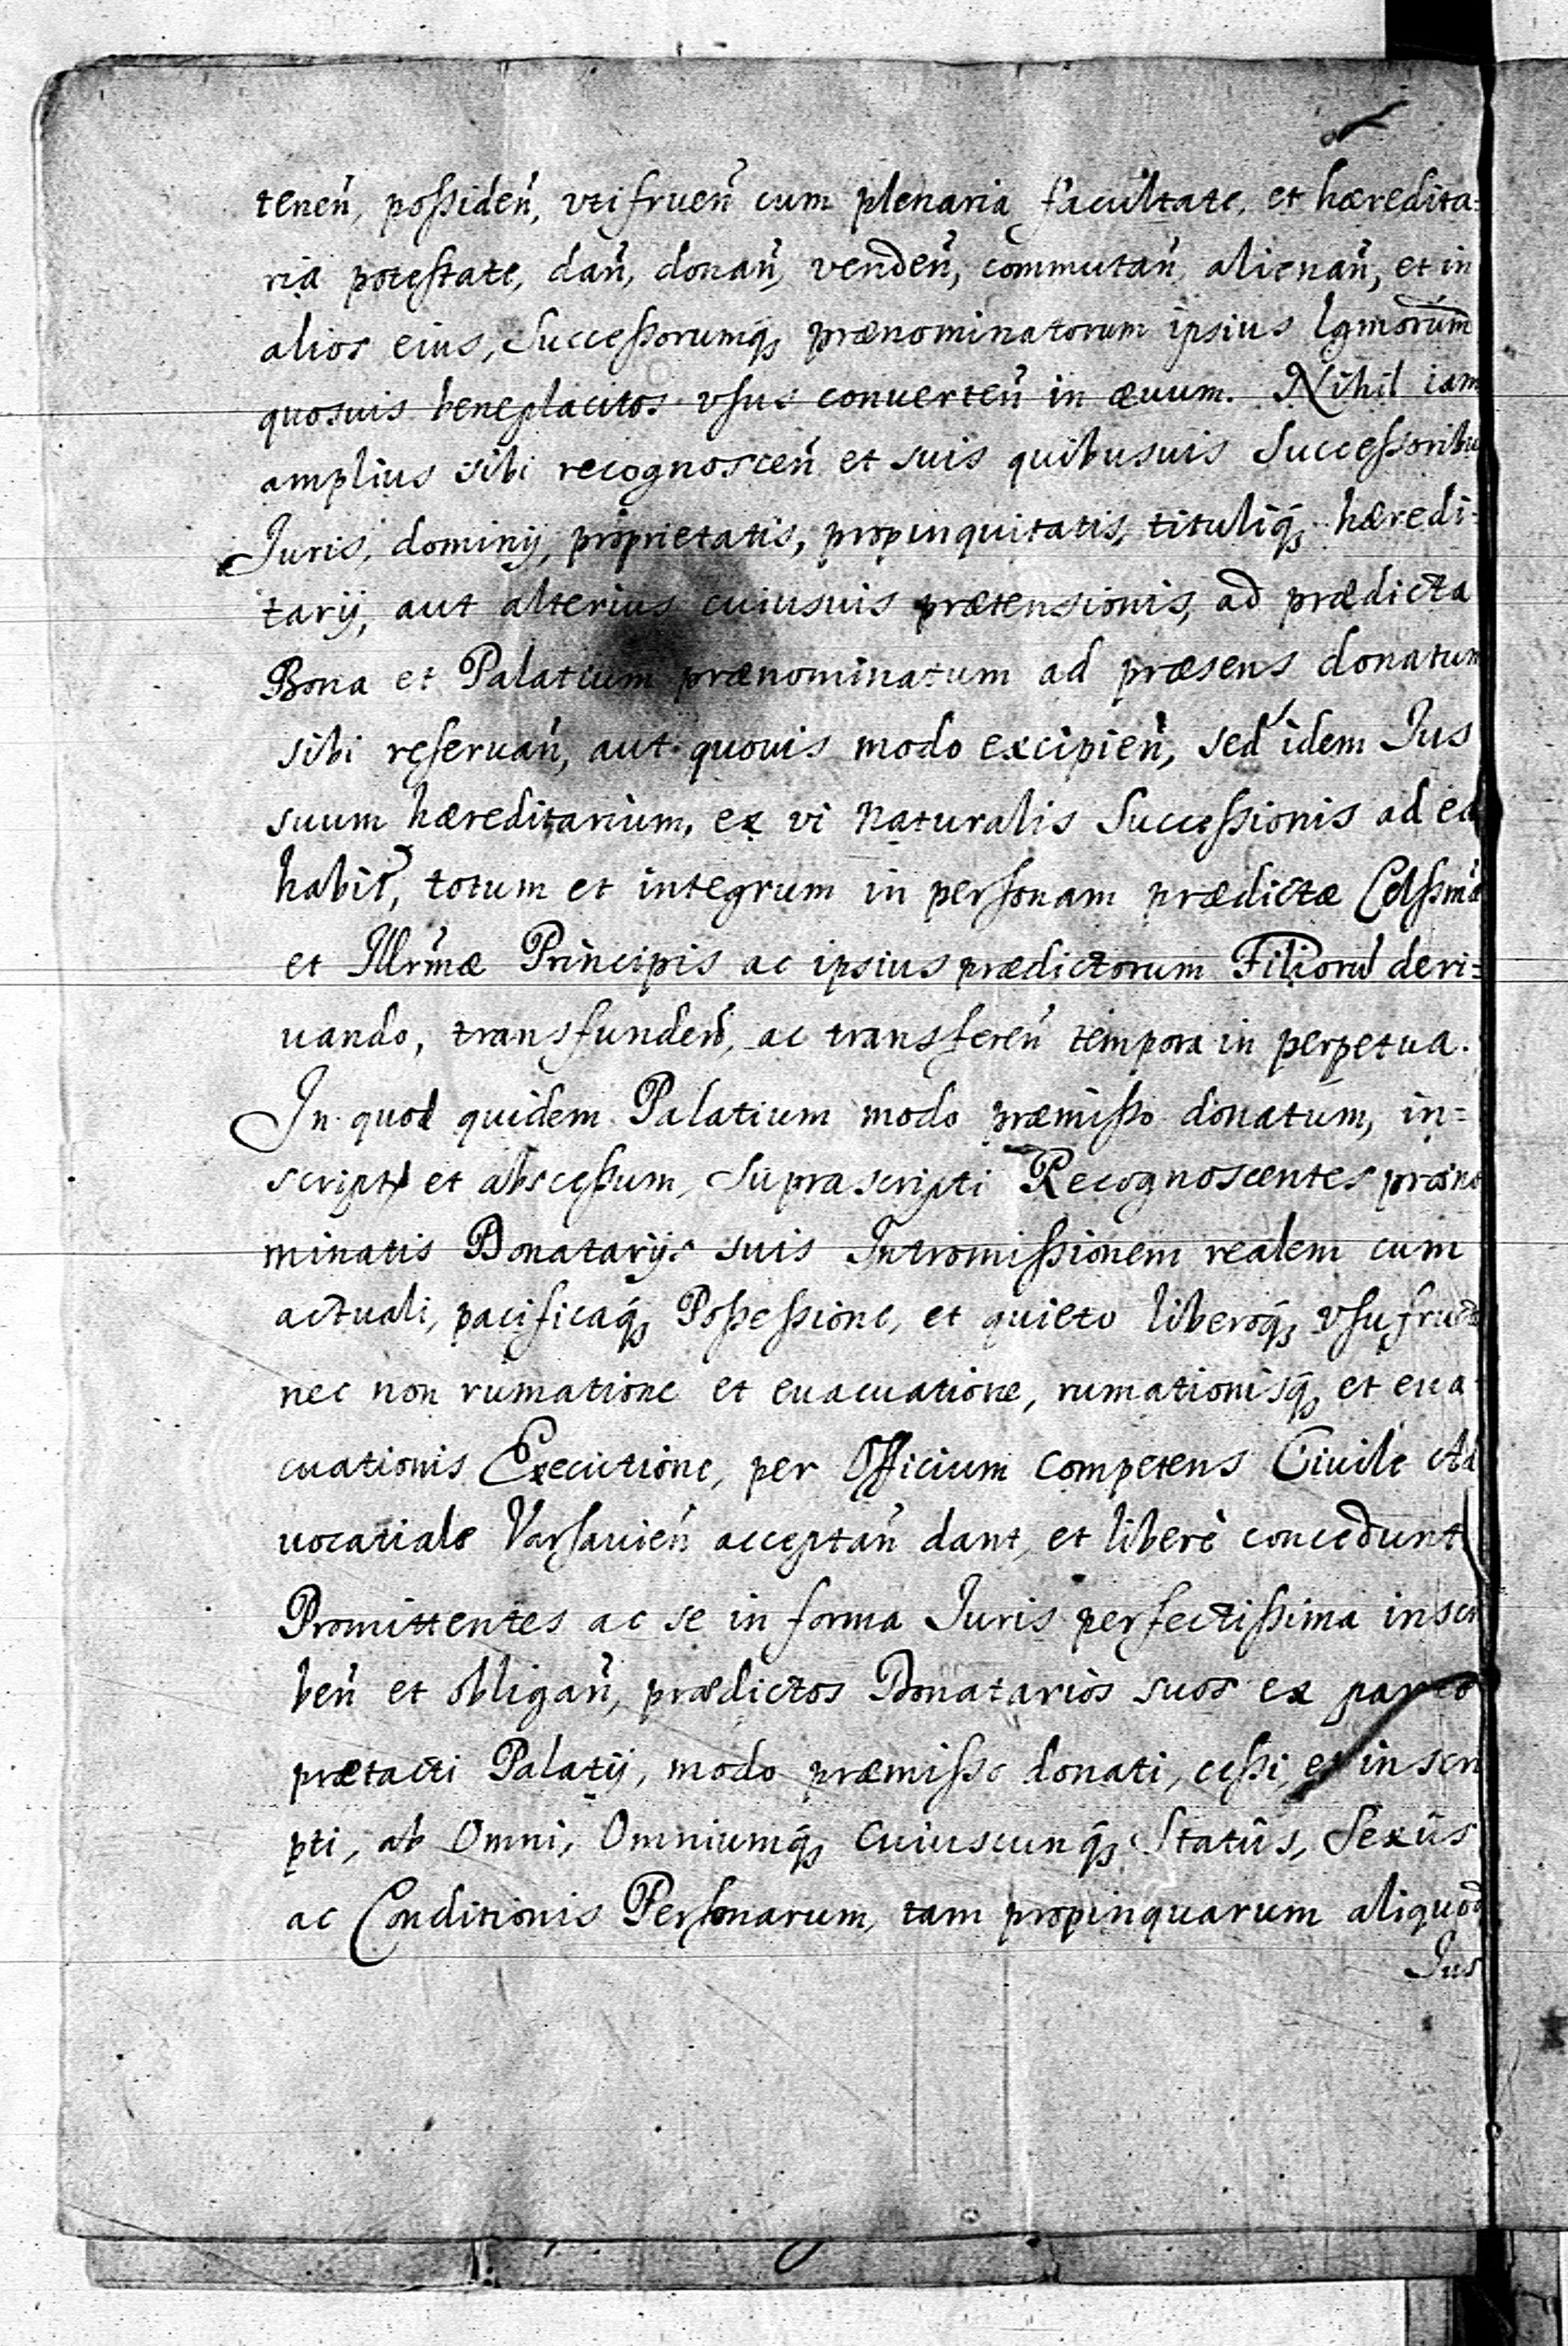 teneñ, poßideñ, vtifrueñ cum plenaria facultate, et hæredita=
ria potestate, dañ, donañ, vendeñ, commutañ, alienañ, et in
alios eius, Succeßorumq́ꝫ prænominatorum ipsius lgmorum
quosuis beneplacitos vsus conuerteñ in æuum. Nihil iam
amplius sibi recognosceñ et suis quibusuis Succeßoribu
Juris, dominij, proprietatis, propinquitatis, tituliq́ꝫ hæredi=
tarij, aut alterius cuiusuis prætensionis, ad prædicta
Bona et Palatium prænominatum ad præsens donatum
sibi reseruañ, aut quouis modo excipieñ, sed idem Jus
suum hæreditarium, ex vi naturalis Succeßionis ad ea
habit̃, totum et integrum in personam prædictæ Celßmæ
et Illrmæ Principis ac ipsius prædictorum Filiorū deri=
uando, transfundeñ, ac transfereñ tempora in perpetua.
In quod quidem Palatium modo præmißo donatum, in=
script et absceßum, Suprascripti Recognoscentes præno
minatis Donatarijs suis Intromißionem realem cum
actuali, pacificaq́ꝫ Poßeßione, et quieto liberoq́ꝫ vsufructu
nec non rumatione et euacuatione, rumationisq́ꝫ et eua
cuationis Executione, per Officium competens Ciuile Ad
uocatiale Varsauieñ acceptañ dant, et liberè concedunt
Promittentes ac se in forma Juris perfectißima inscri
beñ et obligañ, prædictos Donatarios suos ex parte
prætacti Palatij, modo præmißo donati, ceßi, et inscri
pti, ab Omni, Omniumq́ꝫ cuiuscunq́ꝫ Statûs, Sexûs
ac Conditionis Personarum, tam propinquarum aliquod
Jus